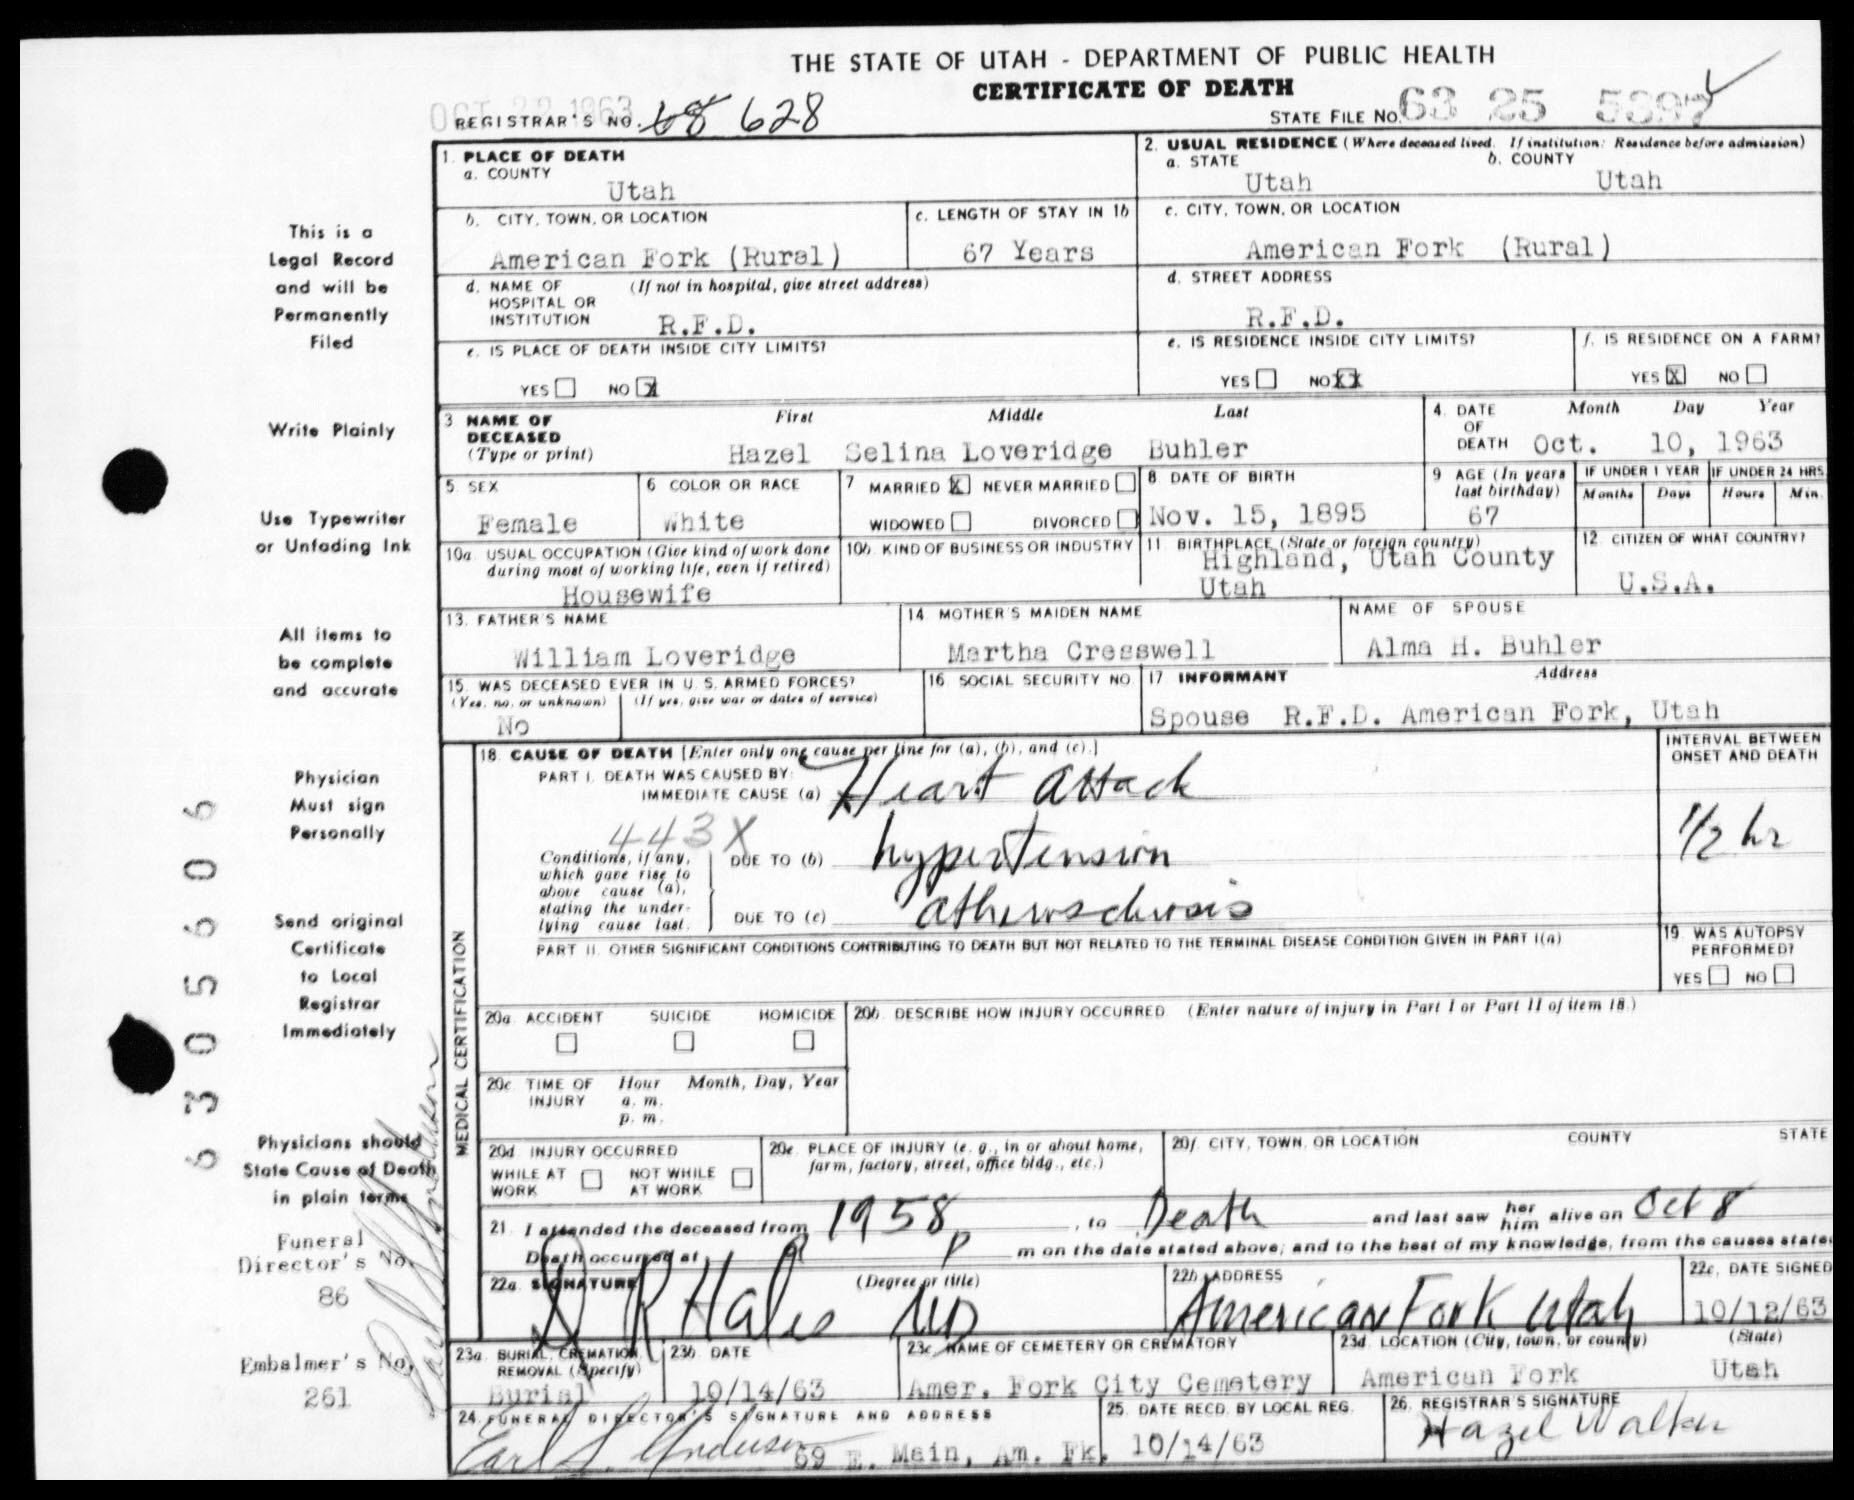 THE STATE OF UTAH - DEPARTMENT OF PUBLIC HEALTH
CERTIFICATE OF DEATH
OCT 22 1963
REGISTRAR'S NO. 68 628
STATE FILE NO. 63 25
1. PLACE OF DEATH
a. COUNTY
Utah
2. USUAL RESIDENCE (Where deceased lived. If institution: Residence before admission)
a. STATE b. COUNTY
Utah Utah
b. CITY, TOWN, OR LOCATION
American Fork (Rural)
c. LENGTH OF STAY IN 1b
67 Years
c. CITY, TOWN, OR LOCATION
American Fork (Rural)
d. NAME OF HOSPITAL OR INSTITUTION (If not in hospital, give street address)
R.F.D.
d. STREET ADDRESS
R.F.D.
e. IS PLACE OF DEATH INSIDE CITY LIMITS?
YES NO X
e. IS RESIDENCE INSIDE CITY LIMITS?
YES NO XX
f. IS RESIDENCE ON A FARM?
YES X NO
3 NAME OF DECEASED (Type or print)
First Middle Last
Hazel Selina Loveridge Buhler
4. DATE OF DEATH
Month Day Year
Oct. 10, 1963
5. SEX
Female
6 COLOR OR RACE
White
7 MARRIED X NEVER MARRIED
WIDOWED DIVORCED
8 DATE OF BIRTH
Nov. 15, 1895
9 AGE (In years last birthday)
67
IF UNDER 1 YEAR
Months Days
IF UNDER 24 HRS.
Hours Min.
10a. USUAL OCCUPATION (Give kind of work done during most of working life, even if retired)
Housewife
10b. KIND OF BUSINESS OR INDUSTRY
11 BIRTHPLACE (State or foreign country)
Highland, Utah County
Utah
12 CITIZEN OF WHAT COUNTRY?
U.S.A.
13. FATHER'S NAME
William Loveridge
14 MOTHER'S MAIDEN NAME
Martha Cresswell
NAME OF SPOUSE
Alma H. Buhler
15. WAS DECEASED EVER IN U. S. ARMED FORCES?
(Yes, no, or unknown) (If yes, give war or dates of service)
No
16 SOCIAL SECURITY NO.
17 INFORMANT Address
Spouse R.F.D. American Fork, Utah
MEDICAL CERTIFICATION
18. CAUSE OF DEATH [Enter only one cause per line for (a), (b), and (c).]
PART I. DEATH WAS CAUSED BY:
IMMEDIATE CAUSE (a) Heart attack
443X
Conditions, if any, which gave rise to above cause (a), stating the underlying cause last.
DUE TO (b) hypertension
DUE TO (c)
INTERVAL BETWEEN ONSET AND DEATH
1/2 hr
PART II. OTHER SIGNIFICANT CONDITIONS CONTRIBUTING TO DEATH BUT NOT RELATED TO THE TERMINAL DISEASE CONDITION GIVEN IN PART I(a)
19. WAS AUTOPSY PERFORMED?
YES NO
20a. ACCIDENT SUICIDE HOMICIDE
20b. DESCRIBE HOW INJURY OCCURRED (Enter nature of injury in Part I or Part II of item 18.)
20c. TIME OF INJURY Hour Month, Day, Year
a. m.
p. m.
20d. INJURY OCCURRED
WHILE AT WORK NOT WHILE AT WORK
20e. PLACE OF INJURY (e. g., in or about home, farm, factory, street, office bldg., etc.)
20f. CITY, TOWN, OR LOCATION COUNTY STATE
21. I attended the deceased from 1958, to Death and last saw her him alive on Oct 8
Death occurred at P m on the date stated above; and to the best of my knowledge, from the causes state
22a. SIGNATURE (Degree or title)
D R Hales MD
22b. ADDRESS
American Fork Utah
22c. DATE SIGNED
10/12/63
23a. BURIAL, CREMATION, REMOVAL (Specify)
Burial
23b. DATE
10/14/63
23c. NAME OF CEMETERY OR CREMATORY
Amer. Fork City Cemetery
23d. LOCATION (City, town, or county) (State)
American Fork Utah
24. FUNERAL DIRECTOR'S SIGNATURE AND ADDRESS
Earl S. Anderson 69 E. Main, Am. Fk.
25. DATE RECD. BY LOCAL REG.
10/14/63
26. REGISTRAR'S SIGNATURE
Hazel Walker
This is a
Legal Record
and will be
Permanently
Filed
Write Plainly
Use Typewriter
or Unfading Ink
All items to
be complete
and accurate
Physician
Must sign
Personally
Send original
Certificate
to Local
Registrar
Immediately
Physicians should
State Cause of Death
in plain terms
Funeral
Director's No.
86
Embalmer's No.
261
6305606